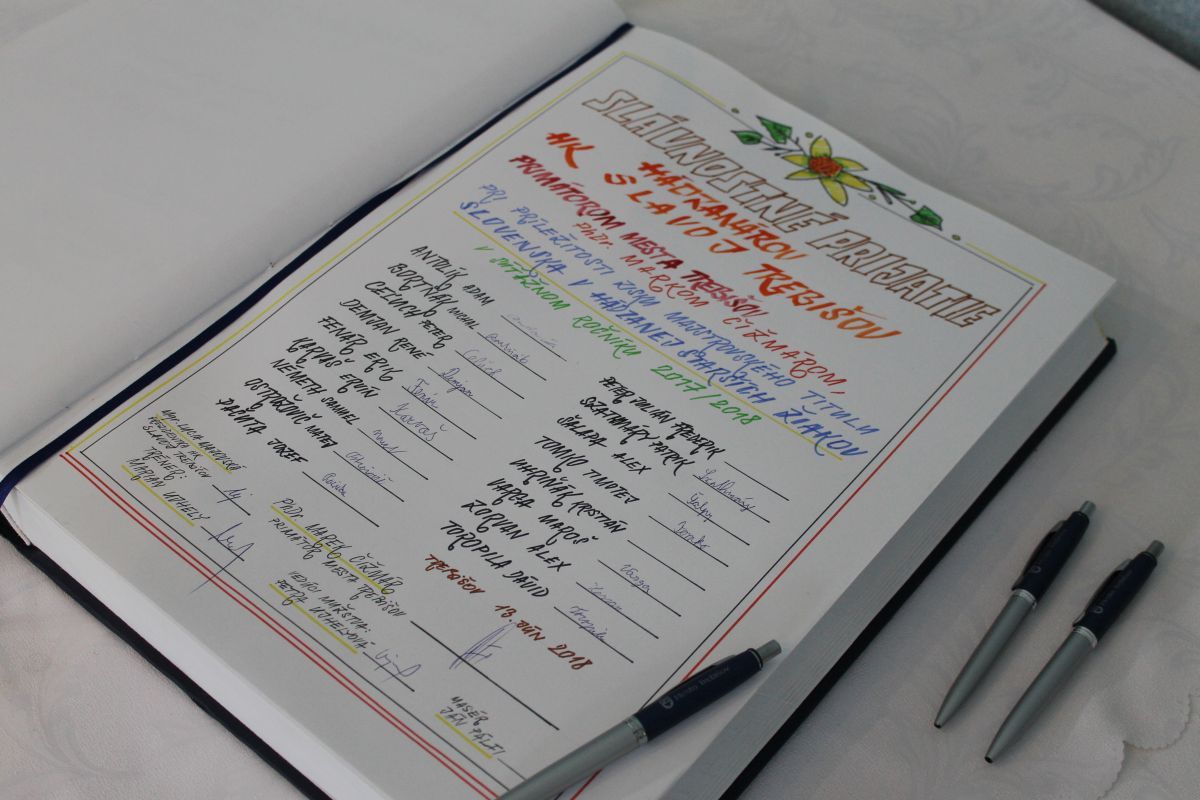 SLÁVNOSTNÉ PRIJATIE
HÁDZANÁROV
HK SLAVOJ TREBIŠOV
PRIMÁTOROM MESTA TREBIŠOV
PhDr. MARKOM ČIŽMÁROM,
PRI PRÍLEŽITOSTI ZISKU MAJSTROVSKÉHO TITULU
SLOVENSKA V HÁDZANEJ STARŠÍCH ŽIAKOV
V SÚŤAŽNOM ROČNÍKU 2017/2018
ANTOLÍK ADAM
BORTŇÁK MICHAL
CELUCH PETER
DEMJAN RENÉ
FENÁR ERIK
KARVAŠ ERVÍN
NÉMETH SAMUEL
OSTROŽOVIČ MATEJ
PAĽUTA JOZEF
PETER JULIÁN FREDERIK
SZATHMÁRY PATRIK
ŠALAPA ALEX
TOMKO TIMOTEJ
UHRIŇÁK KRISTIÁN
VARGA MAROŠ
ZORVAN ALEX
TOROPILA DÁVID
TREBIŠOV 18. JÚN 2018
SLAVOJ TREBIŠOV
TRÉNER:
MARJÁN ÚJHELY
PhDr. MAREK ČIŽMÁR
PRIMÁTOR MESTA TREBIŠOV
VEDÚCI MUŽSTVA:
PETRA ÚJHELYOVÁ
MASÉR
JÁN PÁLFI